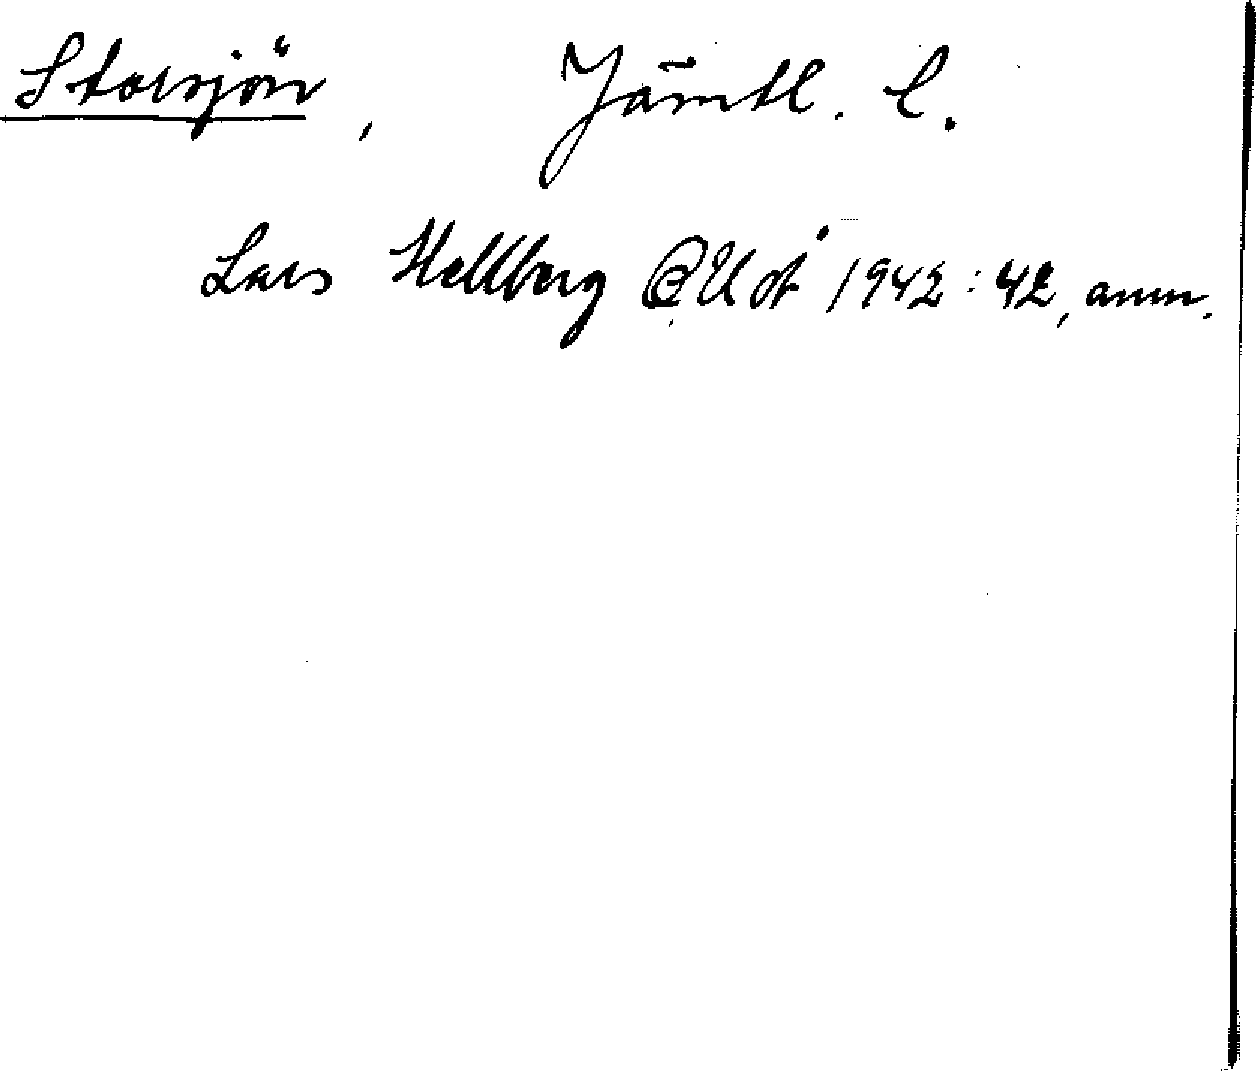 Storsjön, Jämtl. l.
Lars Hellberg UUÅ 1942:42, anm.